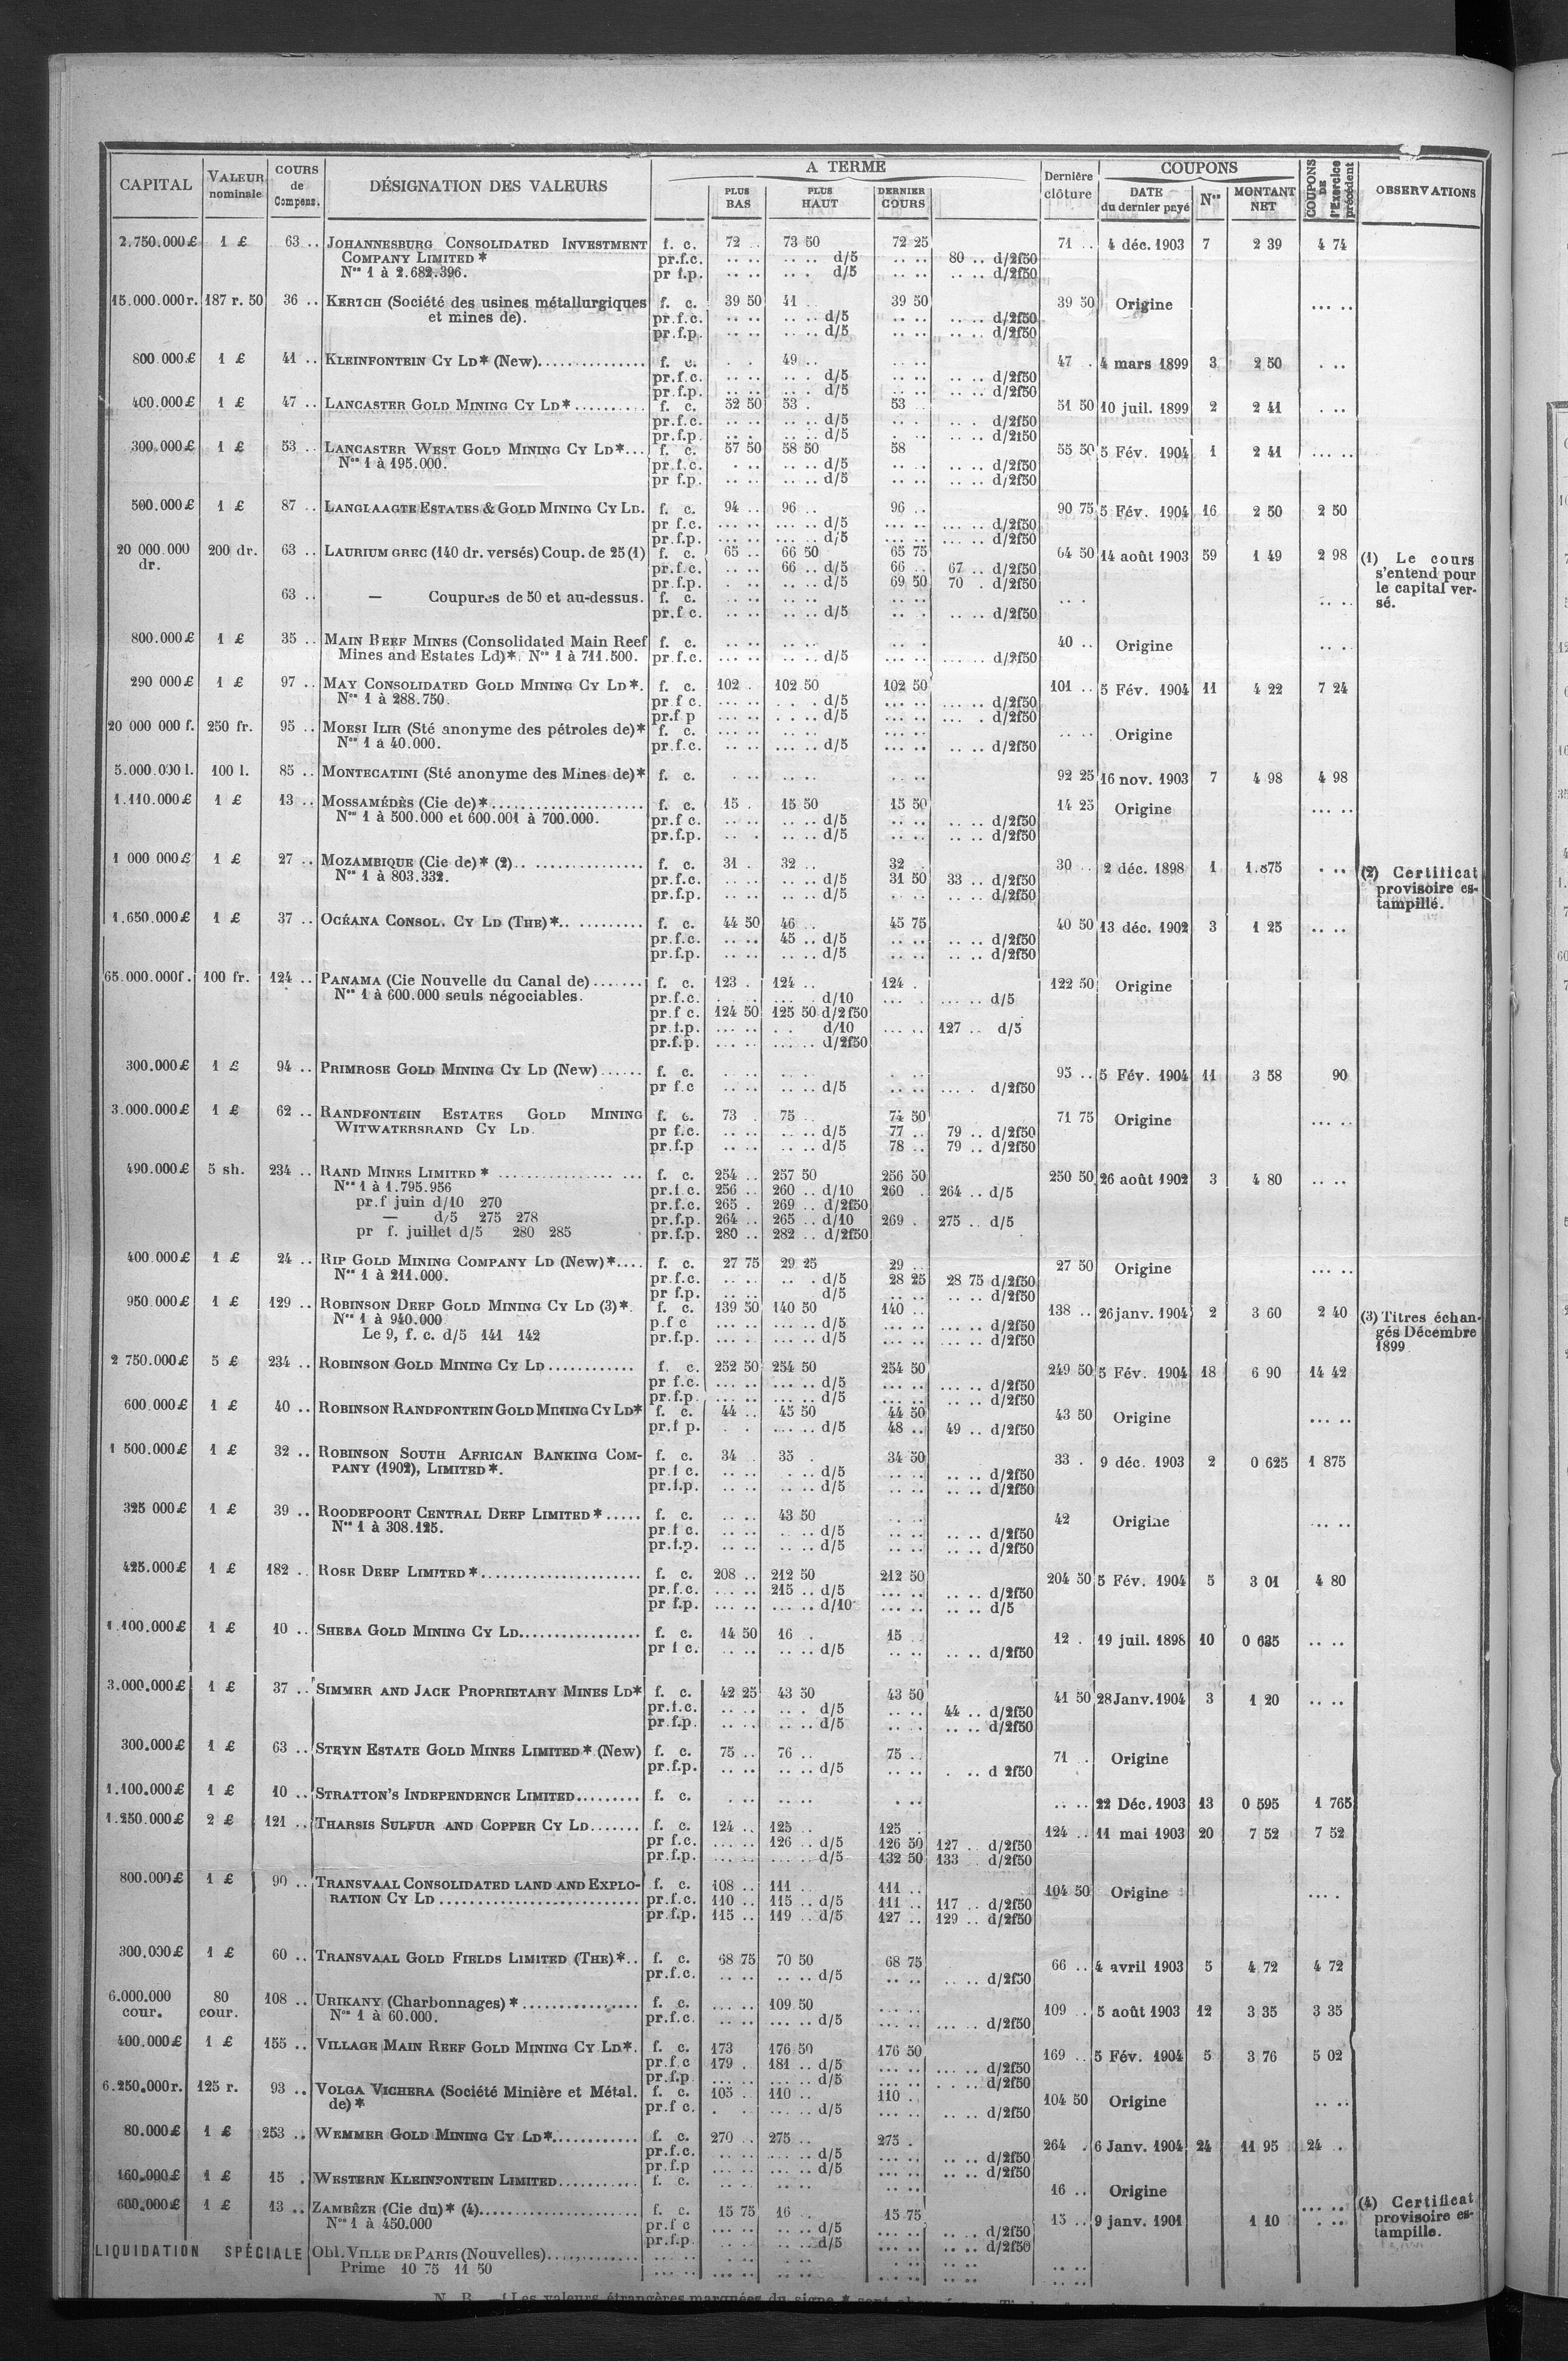 CAPITAL | VALEUR nominale | COURS de Compens. | DÉSIGNATION DES VALEURS | A TERME | Dernière clôture | COUPONS | COUPONS DE l'Exercice précédent | OBSERVATIONS
PLUS BAS | PLUS HAUT | DERNIER COURS | DATE du dernier payé | Nos | MONTANT NET
2.750.000£ 1 £ 63 .. JOHANNESBURG CONSOLIDATED INVESTMENT f. c. 72 .. 73 50 72 25 71 .. 4 déc. 1903 7 2 39 4 74
COMPANY LIMITED * pr.f.c. .. .. .. . d/5 .. .. 80 .. d/2f50
Nos 1 à 2.682.396. pr f.p. .. .. .. . d/5 .. .. .. .. d/2f50
15.000.000r. 187 r. 50 36 .. KERTCH (Société des usines métallurgiques f. c. 39 50 41 .. 39 50 39 50 Origine ... ..
et mines de). pr.f.c. .. .. .. .. d/5 .. .. .. .. d/2f50
pr.f.p. .. .. .. .. d/5 .. .. .. .. d/2f50
800.000£ 1 £ 41 .. KLEINFONTEIN CY LD* (New)............... f. c. . . 49 .. .. .. 47 . 4 mars 1899 3 2 50 . ..
pr.f.c. .. .. .. . d/5 .. .. .. .. d/2f50
pr.f.p. .. .. .. . d/5 .. .. .. .. d/2f50
400.000£ 1 £ 47 .. LANCASTER GOLD MINING CY LD*.......... f. c. 52 50 53 . 53 .. 51 50 10 juil. 1899 2 2 41 . ..
pr.f.c. .. .. .. .. d/5 .. . .. . d/2f50
pr.f.p. .. . .. .. d/5 .. .. .. .. d/2f50
300.000£ 1 £ 53 .. LANCASTER WEST GOLD MINING CY LD*... f. c. 57 50 58 50 58 55 50 5 Fév. 1904 1 2 41 ... ..
Nos 1 à 195.000. pr.f.c. . .. .. .. d/5 .. .. .. .. d/2f50
pr f.p. .. .. .. .. d/5 .. .. .. .. d/2f50
500.000£ 1 £ 87 .. LANGLAAGTE ESTATES & GOLD MINING CY LD. f. c. 94 .. 96 .. 96 .. 90 75 5 Fév. 1904 16 2 50 2 50
pr f.c. ... .. ... .. d/5 ... .. ... .. d/2f50
pr.f.p. ... .. ... .. d/5 ... .. ... .. d/2f50
20 000.000 dr. 200 dr. 63 .. LAURIUM GREC (140 dr. versés) Coup. de 25 (1) f. c. 65 .. 66 50 65 75 64 50 14 août 1903 59 1 49 2 98 (1) Le cours s'entend pour le capital versé.
pr.f.c. .. .. 66 .. d/5 66 .. 67 .. d/2f50
pr.f.p. .. .. .. d/5 69 50 70 . d/2f50
63 .. — Coupures de 50 et au-dessus. f. c. .. .. .. .. .. .. .. . .. ..
pr.f c. .. .. .. .. d/5 .. . .. .. d/2f50
800.000£ 1 £ 35 .. MAIN REEF MINES (Consolidated Main Reef f. c. .. .. .. .. .. . 40 .. Origine .. .
Mines and Estates Ld)*. Nos 1 à 711.500. pr.f.c. ... .. .. .. d/5 ... .. ... .. d/2f50
290 000£ 1 £ 97 .. MAY CONSOLIDATED GOLD MINING CY LD*. f. c. 102 . 102 50 102 50 101 .. 5 Fév. 1904 11 4 22 7 24
Nos 1 à 288.750. pr f c. ... .. . . . d/5 ... .. ... .. d/2f50
pr.f p ... .. . . .. d/5 ... .. ... . d/2f50
20 000 000 f. 250 fr. 95 .. MOESI ILIR (Sté anonyme des pétroles de)* f. c. ... .. ... .. ... .. .. .. Origine
Nos 1 à 40.000. pr.f.c. .. .. ... .. d/5 ... .. .. .. d/2f50
5.000.000 l. 100 l. 85 .. MONTECATINI (Sté anonyme des Mines de)* f. c. . .. .. .. . .. 92 25 16 nov. 1903 7 4 98 4 98
1.110.000£ 1 £ 13 .. MOSSAMÉDÈS (Cie de)*..................... f. c. 15 . 15 50 15 50 14 25 Origine ... ..
Nos 1 à 500.000 et 600.001 à 700.000. pr.f c .. .. .. .. d/5 .. .. .. .. d/2f50
pr.f.p. .. . .. .. d/5 .. .. .. .. d/2f50
1 000 000£ 1 £ 27 .. MOZAMBIQUE (Cie de)* (2).. .............. f. c. 31 . 32 .. 32 .. 30 .. 2 déc. 1898 1 1.875 . .. (2) Certificat provisoire estampillé.
Nos 1 à 803.332. pr.f.c. .. .. .. .. d/5 31 50 33 .. d/2f50
pr.f.p. .. .. .. .. d/5 . .. .. .. d/2f50
1.650.000£ 1 £ 37 .. OCÉANA CONSOL. CY LD (THE)*.. ......... f. c. 44 50 46 .. 45 75 40 50 13 déc. 1902 3 1 25 .. ..
pr.f.c. .. .. 45 .. d/5 .. .. .. .. d/2f50
pr.f.p. .. .. .. .. d/5 .. .. .. .. d/2f50
65.000.000f. 100 fr. 124 .. PANAMA (Cie Nouvelle du Canal de)....... f. c. 123 . 124 .. 124 . 122 50 Origine
Nos 1 à 600.000 seuls négociables. pr.f.c. . . ... . d/10 ... . ... .. d/5
pr.f c. 124 50 125 50 d/2f50
pr.f.p. ... .. . . d/10 ... .. 127 .. d/5
pr.f.p. ... .. ... .. d/2f50
300.000£ 1 £ 94 .. PRIMROSE GOLD MINING CY LD (New)...... f. c. . .. .. .. . .. 95 .. 5 Fév. 1904 11 3 58 90
pr f.c ... .. .. .. d/5 .. .. ... . d/2f50
3.000.000£ 1 £ 62 .. RANDFONTEIN ESTATES GOLD MINING f. c. 73 . 75 .. 74 50 71 75 Origine ... ..
WITWATERSRAND CY LD. pr f.c. .. .. .. .. d/5 77 .. 79 .. d/2f50
pr.f.p .. .. .. .. d/5 78 .. 79 .. d/2f50
490.000£ 5 sh. 234 .. RAND MINES LIMITED * ................ ... f. c. 254 .. 257 50 256 50 250 50 26 août 1902 3 4 80 .. ..
Nos 1 à 1.795.956 pr.f c. 256 .. 260 .. d/10 260 . 264 .. d/5
pr.f juin d/10 270 pr.f.c. 265 . 269 .. d/2f50
— d/5 275 278 pr.f.p. 264 .. 265 .. d/10 269 . 275 .. d/5
pr f. juillet d/5 280 285 pr.f.p. 280 .. 282 .. d/2f50
400.000£ 1 £ 24 .. RIP GOLD MINING COMPANY LD (New)*.... f. c. 27 75 29 25 29 .. 27 50 Origine ... ..
Nos 1 à 211.000. pr.f.c. .. .. .. . d/5 28 25 28 75 d/2f50
pr f.p. d/5 .. .. .. .. d/2f50
950.000£ 1 £ 129 .. ROBINSON DEEP GOLD MINING CY LD (3)*. f. c. 139 50 140 50 140 .. 138 .. 26 janv. 1904 2 3 60 2 40 (3) Titres échangés Décembre 1899
Nos 1 à 940.000 p.f c ... .. ... .. d/5 ... .. ... .. d/2f50
Le 9, f. c. d/5 141 142 pr.f.p. ... . ... .. d/5 ... .. ... .. d/2f50
2 750.000£ 5 £ 234 .. ROBINSON GOLD MINING CY LD............ f. c. 252 50 254 50 254 50 249 50 5 Fév. 1904 18 6 90 14 42
pr f.c. ... .. ... .. d/5 ... .. ... .. d/2f50
pr.f.p. ... .. ... .. d/5 ... .. .. .. d/2f50
600.000£ 1 £ 40 .. ROBINSON RANDFONTEIN GOLD MINING CY LD* f. c. 44 .. 45 50 44 50 43 50 Origine ... ..
pr.f p. . . ... .. d/5 48 .. 49 .. d/2f50
1 500.000£ 1 £ 32 .. ROBINSON SOUTH AFRICAN BANKING COM- f. c. 34 . 35 . 34 50 33 . 9 déc. 1903 2 0 625 1 875
PANY (1902), LIMITED*. pr.f c. .. .. . .. d/5 .. .. .. .. d/2f50
pr.f.p. .. .. .. .. d/5 .. .. .. .. d/2f50
325 000£ 1 £ 39 .. ROODEPOORT CENTRAL DEEP LIMITED*..... f. c. .. .. 43 50 . .. 42 Origine .. ..
Nos 1 à 308.125. pr.f c. .. .. .. .. d/5 .. .. .. .. d/2f50
pr.f.p. .. .. .. .. d/5 .. .. .. .. d/2f50
425.000£ 1 £ 182 .. ROSE DEEP LIMITED*...................... f. c. 208 .. 212 50 212 50 204 50 5 Fév. 1904 5 3 01 4 80
pr.f.c. ... .. 215 .. d/5 ... .. .. .. d/2f50
pr f.p. ... .. ... .. d/10 ... .. .. .. d/5
1.100.000£ 1 £ 10 .. SHEBA GOLD MINING CY LD................. f. c. 14 50 16 . 15 .. 12 . 19 juil. 1898 10 0 625 .. ..
pr f c. .. .. .. .. d/5 .. .. .. .. d/2f50
3.000.000£ 1 £ 37 .. SIMMER AND JACK PROPRIETARY MINES LD* f. c. 42 25 43 50 43 50 41 50 28 Janv. 1904 3 1 20 .. ..
pr.f.c. .. .. .. . d/5 .. .. 44 .. d/2f50
pr.f.p. .. .. .. .. d/5 .. . .. .. d/2f50
300.000£ 1 £ 63 .. STEYN ESTATE GOLD MINES LIMITED* (New) f. c. 75 .. 76 .. 75 .. 71 . Origine
pr.f.p. .. .. .. .. d/5 .. .. . .. d 2f50
1.100.000£ 1 £ 10 .. STRATTON'S INDEPENDENCE LIMITED......... f. c. . .. .. .. . .. .. .. 22 Déc. 1903 13 0 595 1 765
1.250.000£ 2 £ 121 .. THARSIS SULFUR AND COPPER CY LD....... f. c. 124 .. 125 .. 125 . 124 .. 11 mai 1903 20 7 52 7 52
pr f.c. ... .. 126 .. d/5 126 50 127 .. d/2f50
pr.f.p. ... .. ... .. d/5 132 50 133 . d/2f50
800.000£ 1 £ 90 .. TRANSVAAL CONSOLIDATED LAND AND EXPLO- f. c. 108 .. 111 .. 111 .. 104 50 Origine ... .
RATION CY LD .......................... pr.f.c. 110 .. 115 .. d/5 111 .. 117 .. d/2f50
pr.f.p. 115 .. 119 .. d/5 127 .. 129 .. d/2f50
300.000£ 1 £ 60 .. TRANSVAAL GOLD FIELDS LIMITED (THE)*.. f. c. 68 75 70 50 68 75 66 .. 4 avril 1903 5 4 72 4 72
pr.f.c. .. .. .. .. d/5 .. .. .. .. d/2f50
6.000.000 cour. 80 cour. 108 .. URIKANY (Charbonnages)*................ f. c. ... .. 109 50 ... .. 109 .. 5 août 1903 12 3 35 3 35
Nos 1 à 60.000. pr.f.c. .. .. ... .. d/5 ... .. ... .. d/2f50
400.000£ 1 £ 155 .. VILLAGE MAIN REEF GOLD MINING CY LD*. f. c. 173 176 50 176 50 169 .. 5 Fév. 1904 5 3 76 5 02
pr.f c 179 . 181 .. d/5 ... .. ... .. d/2f50
pr.f.p ... .. ... .. d/5 ... .. . . .. d/2f50
6.250.000r. 125 r. 93 .. VOLGA VICHERA (Société Minière et Métal. f. c. 105 .. 110 .. 110 . 104 50 Origine .. ..
de)* pr.f c. . . ... .. d/5 ... .. .. .. d/2f50
80.000£ 1 £ 253 .. WEMMER GOLD MINING CY LD*............ f. c. 270 .. 275 .. 275 . 264 . 6 Janv. 1904 24 11 95 24 .
pr.f.c. ... .. ... .. d/5 ... .. .. .. d/2f50
pr f.p ... .. ... .. d/5 ... .. .. .. d/2f50
160.000£ 1 £ 15 . WESTERN KLEINFONTEIN LIMITED........... f. c. .. .. .. .. .. .. 16 .. Origine
600.000£ 1 £ 13 .. ZAMBÈZE (Cie du)* (4)...................... f. c. 15 75 16 .. 15 75 15 .. 9 janv. 1901 1 10 . .. (4) Certificat provisoire estampille.
Nos 1 à 450.000 pr.f c ... .. .. .. d/5 ... .. .. .. d/2f50
pr.f.p .. .. .. .. d/5 ... .. .. .. d/2f50
LIQUIDATION SPÉCIALE Obl. VILLE DE PARIS (Nouvelles)..............
Prime 10 75 11 50
N. B. — Les valeurs étrangères marquées du signe *